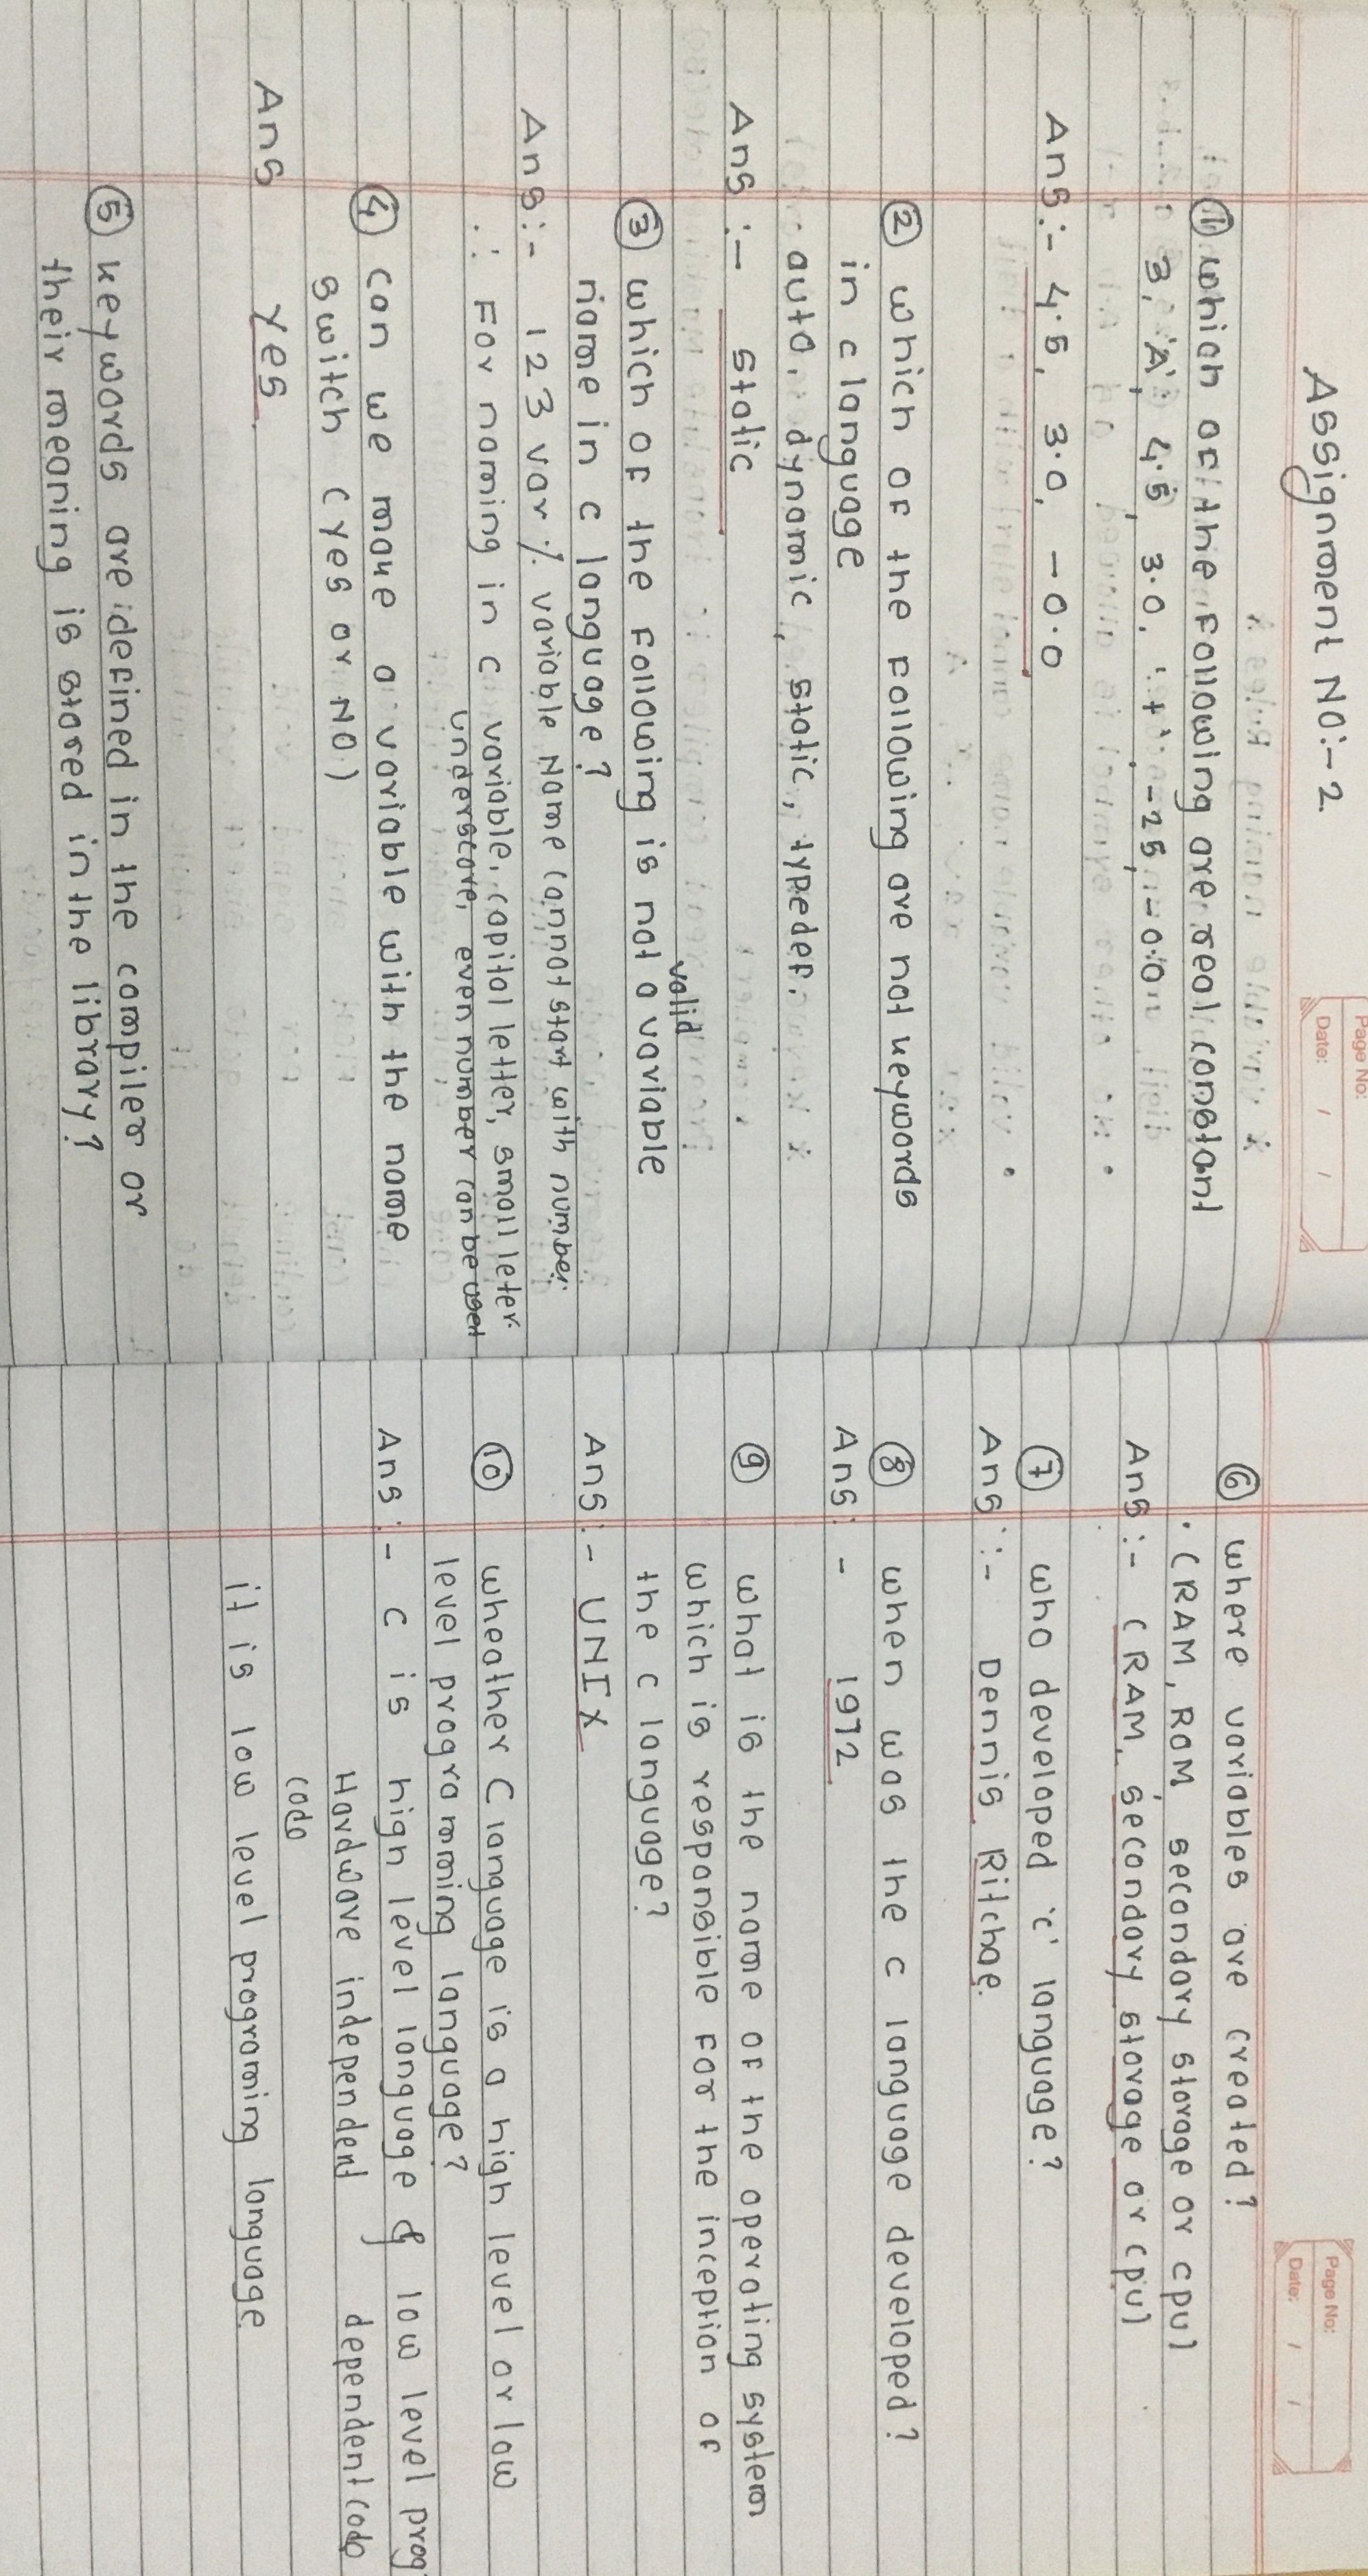 Page No:
Date: / /
Assignment No:- 2
① which of the following are real constant
3, 'A', 4.5, 3.0, '+', -25, -0.0
Ans:- 4.5, 3.0, -0.0
② which of the following are not keywords
in c language
auto, dynamic, static, typedef.
Ans :- static
③ which of the following is not a valid variable
name in c language?
Ans:- 123 var % variable Name cannot start with number
∴ For naming in c variable, capital letter, small leter
underscore, even number can be used
④ can we make a variable with the name
switch (yes or NO)
Ans yes
⑤ keywords are defined in the compiler or
their meaning is stored in the library?
Page No:
Date: / /
⑥ where variables are created?
(RAM, ROM, secondary storage or cpu)
Ans :- (RAM, secondary storage or cpu)
⑦ who developed 'c' language?
Ans :- Dennis Ritchae.
⑧ when was the c language developed?
Ans: - 1972
⑨ what is the name of the operating system
which is responsible for the inception of
the c language?
Ans:- UNIX
⑩ wheather C language is a high level or low
level programming language?
Ans :- c is high level language & low level prog
Hardware independent dependent code
code
it is low level programing language